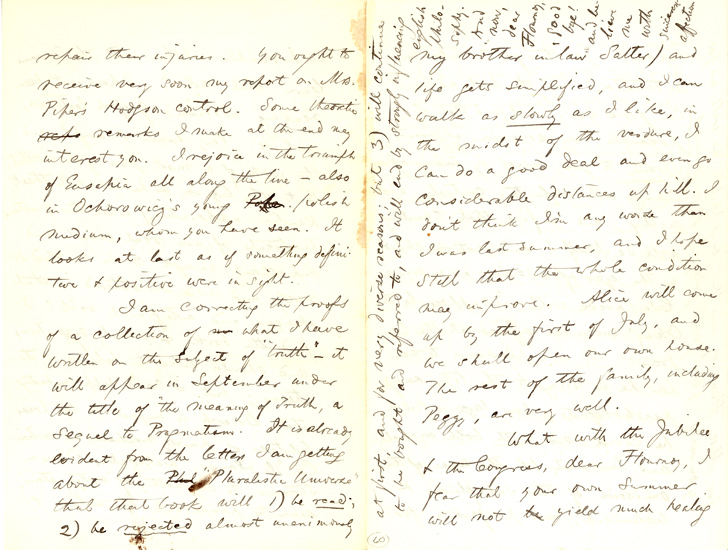 repair their injuries. You ought to
receive very soon my report on Mrs.
Piper's Hodgson control. Some theoretic
remarks I make at the end may
interest you. I rejoice in the triumph
of Eusapia all along the line – also
in Ochorowicz's young Polish
medium, whom you have seen. It
looks at last as if something defini
tive & positive were in sight.
I am correcting the proofs
of a collection of what I have
written on the subject of "truth" – it
will appear in September under
the title of "the meaning of Truth, a
Sequel to Pragmatism. It is already
evident from the letters I am getting
about the "Pluralistic Universe"
that that book will 1) be read;
2) be rejected almost unanimously
at first, and for very diverse reasons; but 3) will continue
to be bought and referred to, and will end by strongly influencing
english
philo-
sophy.
And
now,
dear
Flournoy,
good
bye!
and be-
lieve
me
with
sincere
affection
my brother in law Salter) and
life gets simplified, and I can
walk as slowly as I like, in
the midst of the verdure, I
can do a good deal and even go
considerable distances up hill. I
don't think I'm any worse than
I was last summer, and I hope
still that the whole condition
may improve. Alice will come
up by the first of July, and
we shall open our own house.
The rest of the family, including
Peggy, are very well.
What with the Jubilee
& the Congress, dear Flournoy, I
fear that your own summer
will not yield much healing